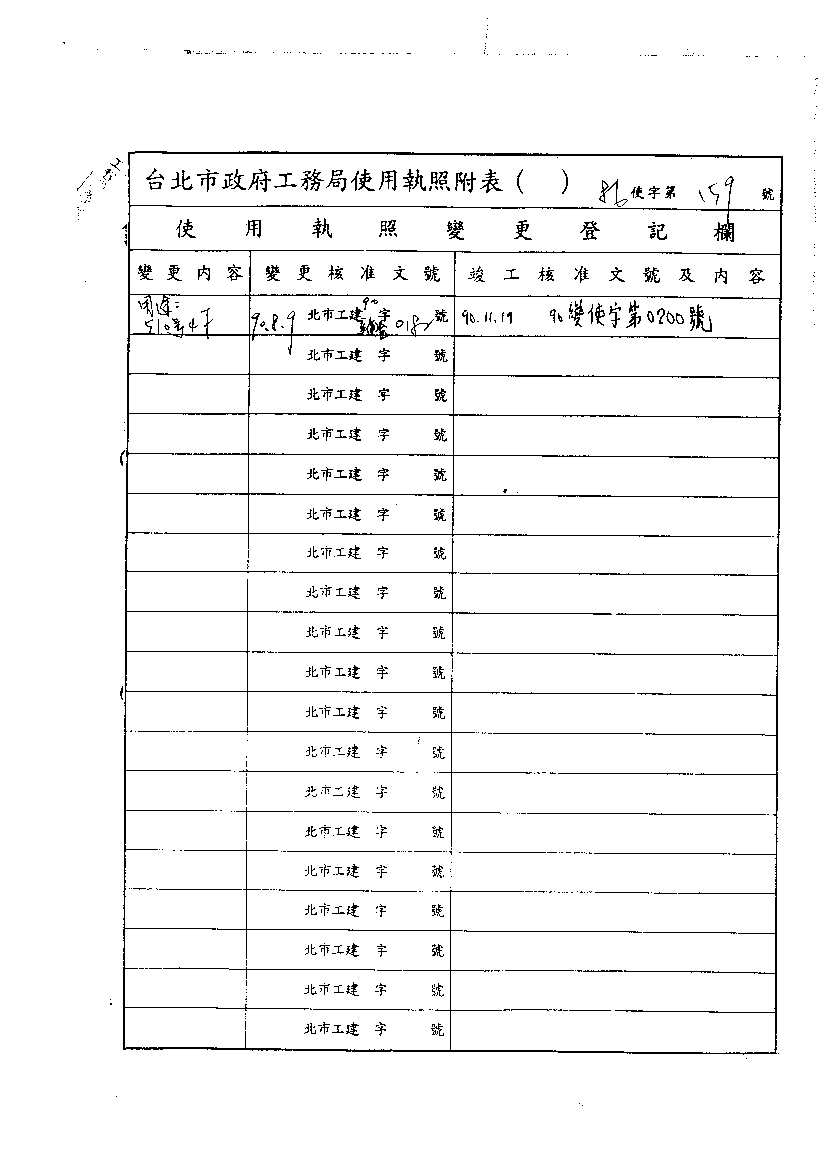 台北市政府工務局使用執照附表（ ） 86使字第 159 號
使用執照變更登記欄
變更內容 變更核准文號 竣工核准文號及內容
用途：
510號4F 90.8.9 北市工建 字 90 018 號 90.11.19 90變使字第0200號
北市工建 字 號
北市工建 字 號
北市工建 字 號
北市工建 字 號
北市工建 字 號
北市工建 字 號
北市工建 字 號
北市工建 字 號
北市工建 字 號
北市工建 字 號
北市工建 字 號
北市工建 字 號
北市工建 字 號
北市工建 字 號
北市工建 字 號
北市工建 字 號
北市工建 字 號
北市工建 字 號